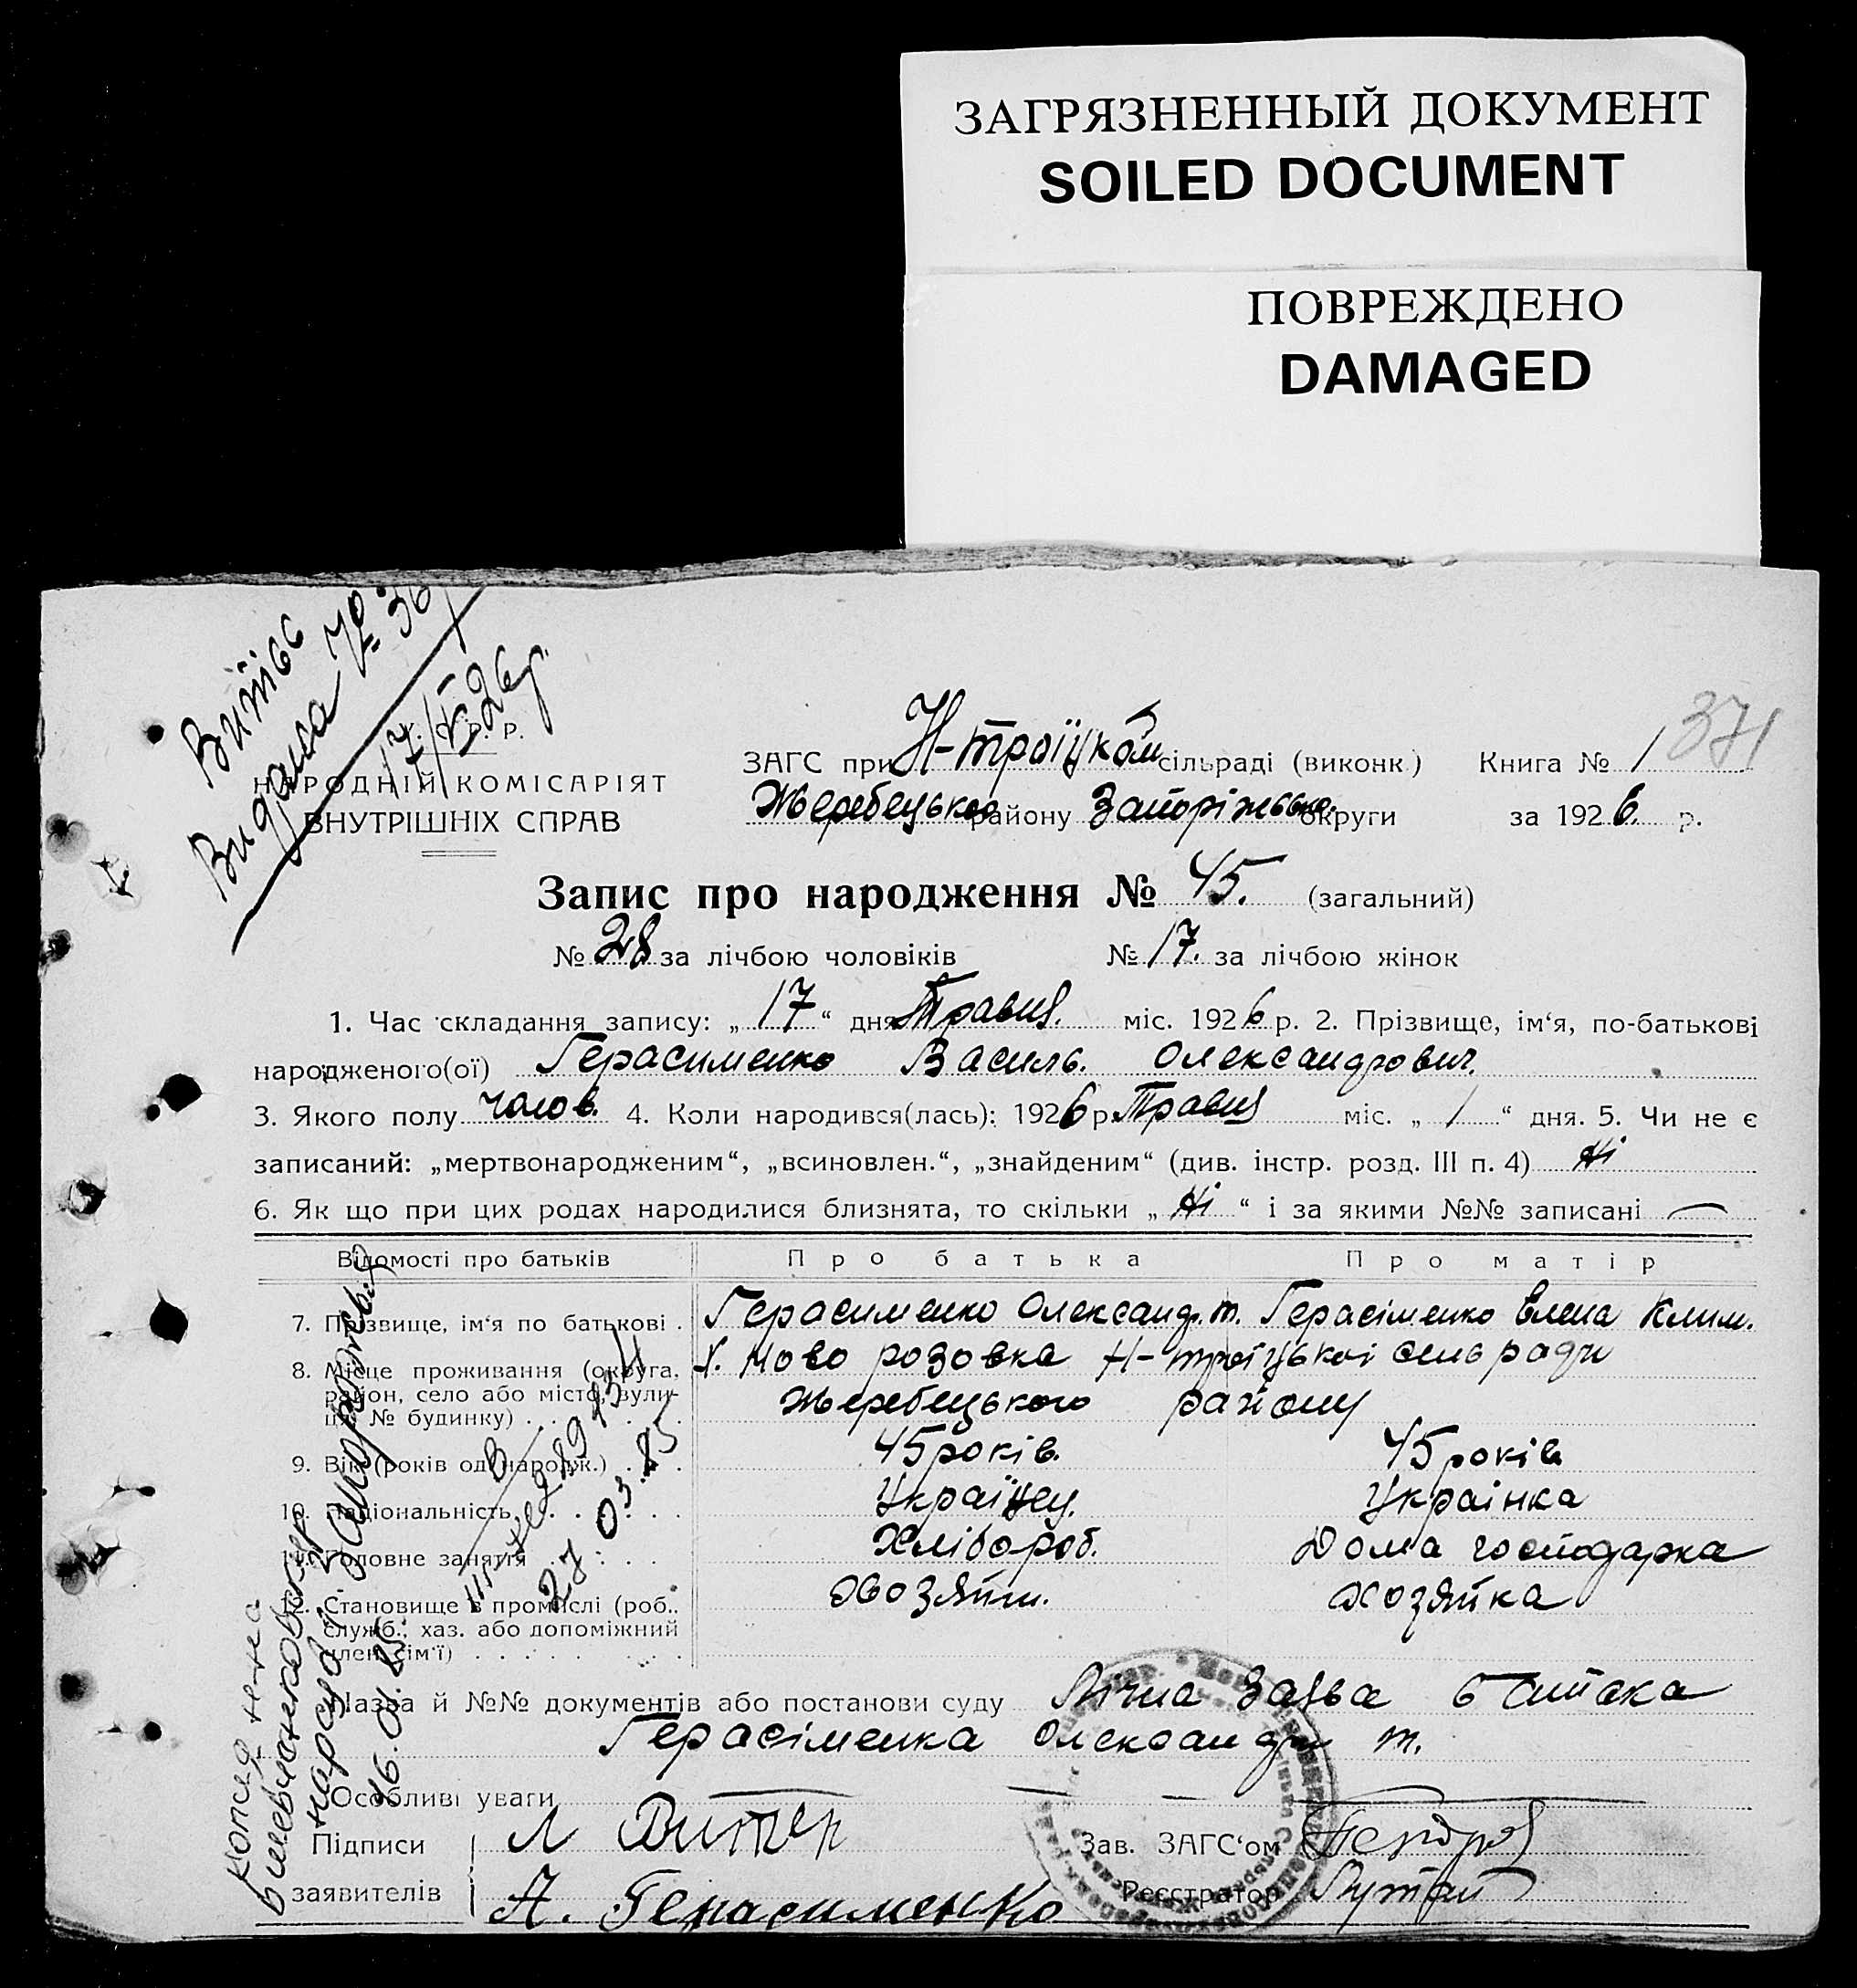 ЗАГРЯЗНЕННЫЙ ДОКУМЕНТ
SOILED DOCUMENT
ПОВРЕЖДЕНО
DAMAGED
Витяг
Видана № 36
17/V-26р.
371
НАРОДНІЙ КОМІСАРІЯТ
ВНУТРІШНІХ СПРАВ
ЗАГС при Н-троїцком сільраді (виконк.) Книга № 1
Жеребецько району Запоріжько округи за 1926. р.
Запис про народження № 45. (загальний)
№ 28 за лічбою чоловіків № 17. за лічбою жінок
1. Час складання запису: „17“ дня Травня. міс. 1926 р. 2. Прізвище, ім‘я, по-батькові
народженого(ої) Герасименко Василь. Олександрович.
3. Якого полу чолов. 4. Коли народився(лась): 1926 р. Травня міс. „1“ дня. 5. Чи не є
записаний: „мертвонародженим“, „всиновлен.“, „знайденим“ (див. інстр. розд. III п. 4) Ні
6. Як що при цих родах народилися близнята, то скільки „Ні“ і за якими №№ записані —
Відомості про батьків Про батька Про матір
7. Прізвище, ім‘я по батькові . Герасименко Олександ. т. Герасіменко Елена Клим.
8. Місце проживання (округа, район, село або місто, вулиця, № будинку) х. Ново розовка Н-троїцькоі сельради
Жеребецького району
9. Вік (років од народж.) 45 років. 45 років
10. Національність Українец. Украінка
11. Головне заняття Хлібороб. Дома господарка
12. Становище в промислі (роб., служб., хаз. або допоміжний член сім‘ї) Хозяин. Хозяйка
Назва й №№ документів або постанови суду Лічна Заява батька
Герасіменка Олександр т.
Особливі уваги —
Підписи
заявителів
А. Герасименко
Зав. ЗАГС‘ом
Реєстратор
27.03.85
16.01.85